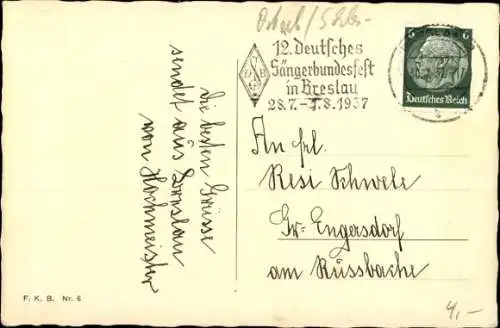 12. Deutsches
Sängerbundesfest
in Breslau
28.7.-1.8.1937
6
Deutsches Reich
Die besten Grüsse
sendet aus Breslau
von Hochmeister
An Frl.
Resi Schwele
Gr. Engersdorf
am Russbache
F. K. B. Nr. 6
4,-